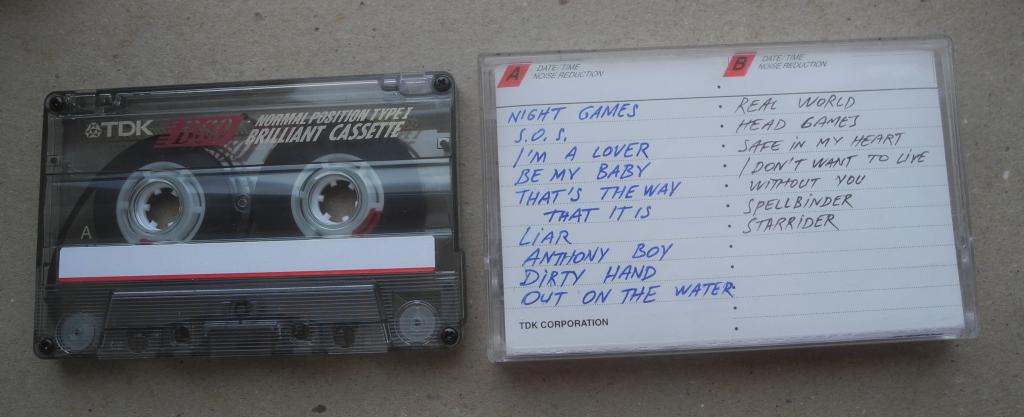 TDK
BRD
NORMAL POSITION TYPE I
BRILLIANT CASSETTE
A
A
DATE/TIME
NOISE REDUCTION
NIGHT GAMES
S.O.S.
I'M A LOVER
BE MY BABY
THAT'S THE WAY
THAT IT IS
LIAR
ANTHONY BOY
DIRTY HAND
OUT ON THE WATER
TDK CORPORATION
B
DATE/TIME
NOISE REDUCTION
REAL WORLD
HEAD GAMES
SAFE IN MY HEART
I DON'T WANT TO LIVE
WITHOUT YOU
SPELLBINDER
STARRIDER